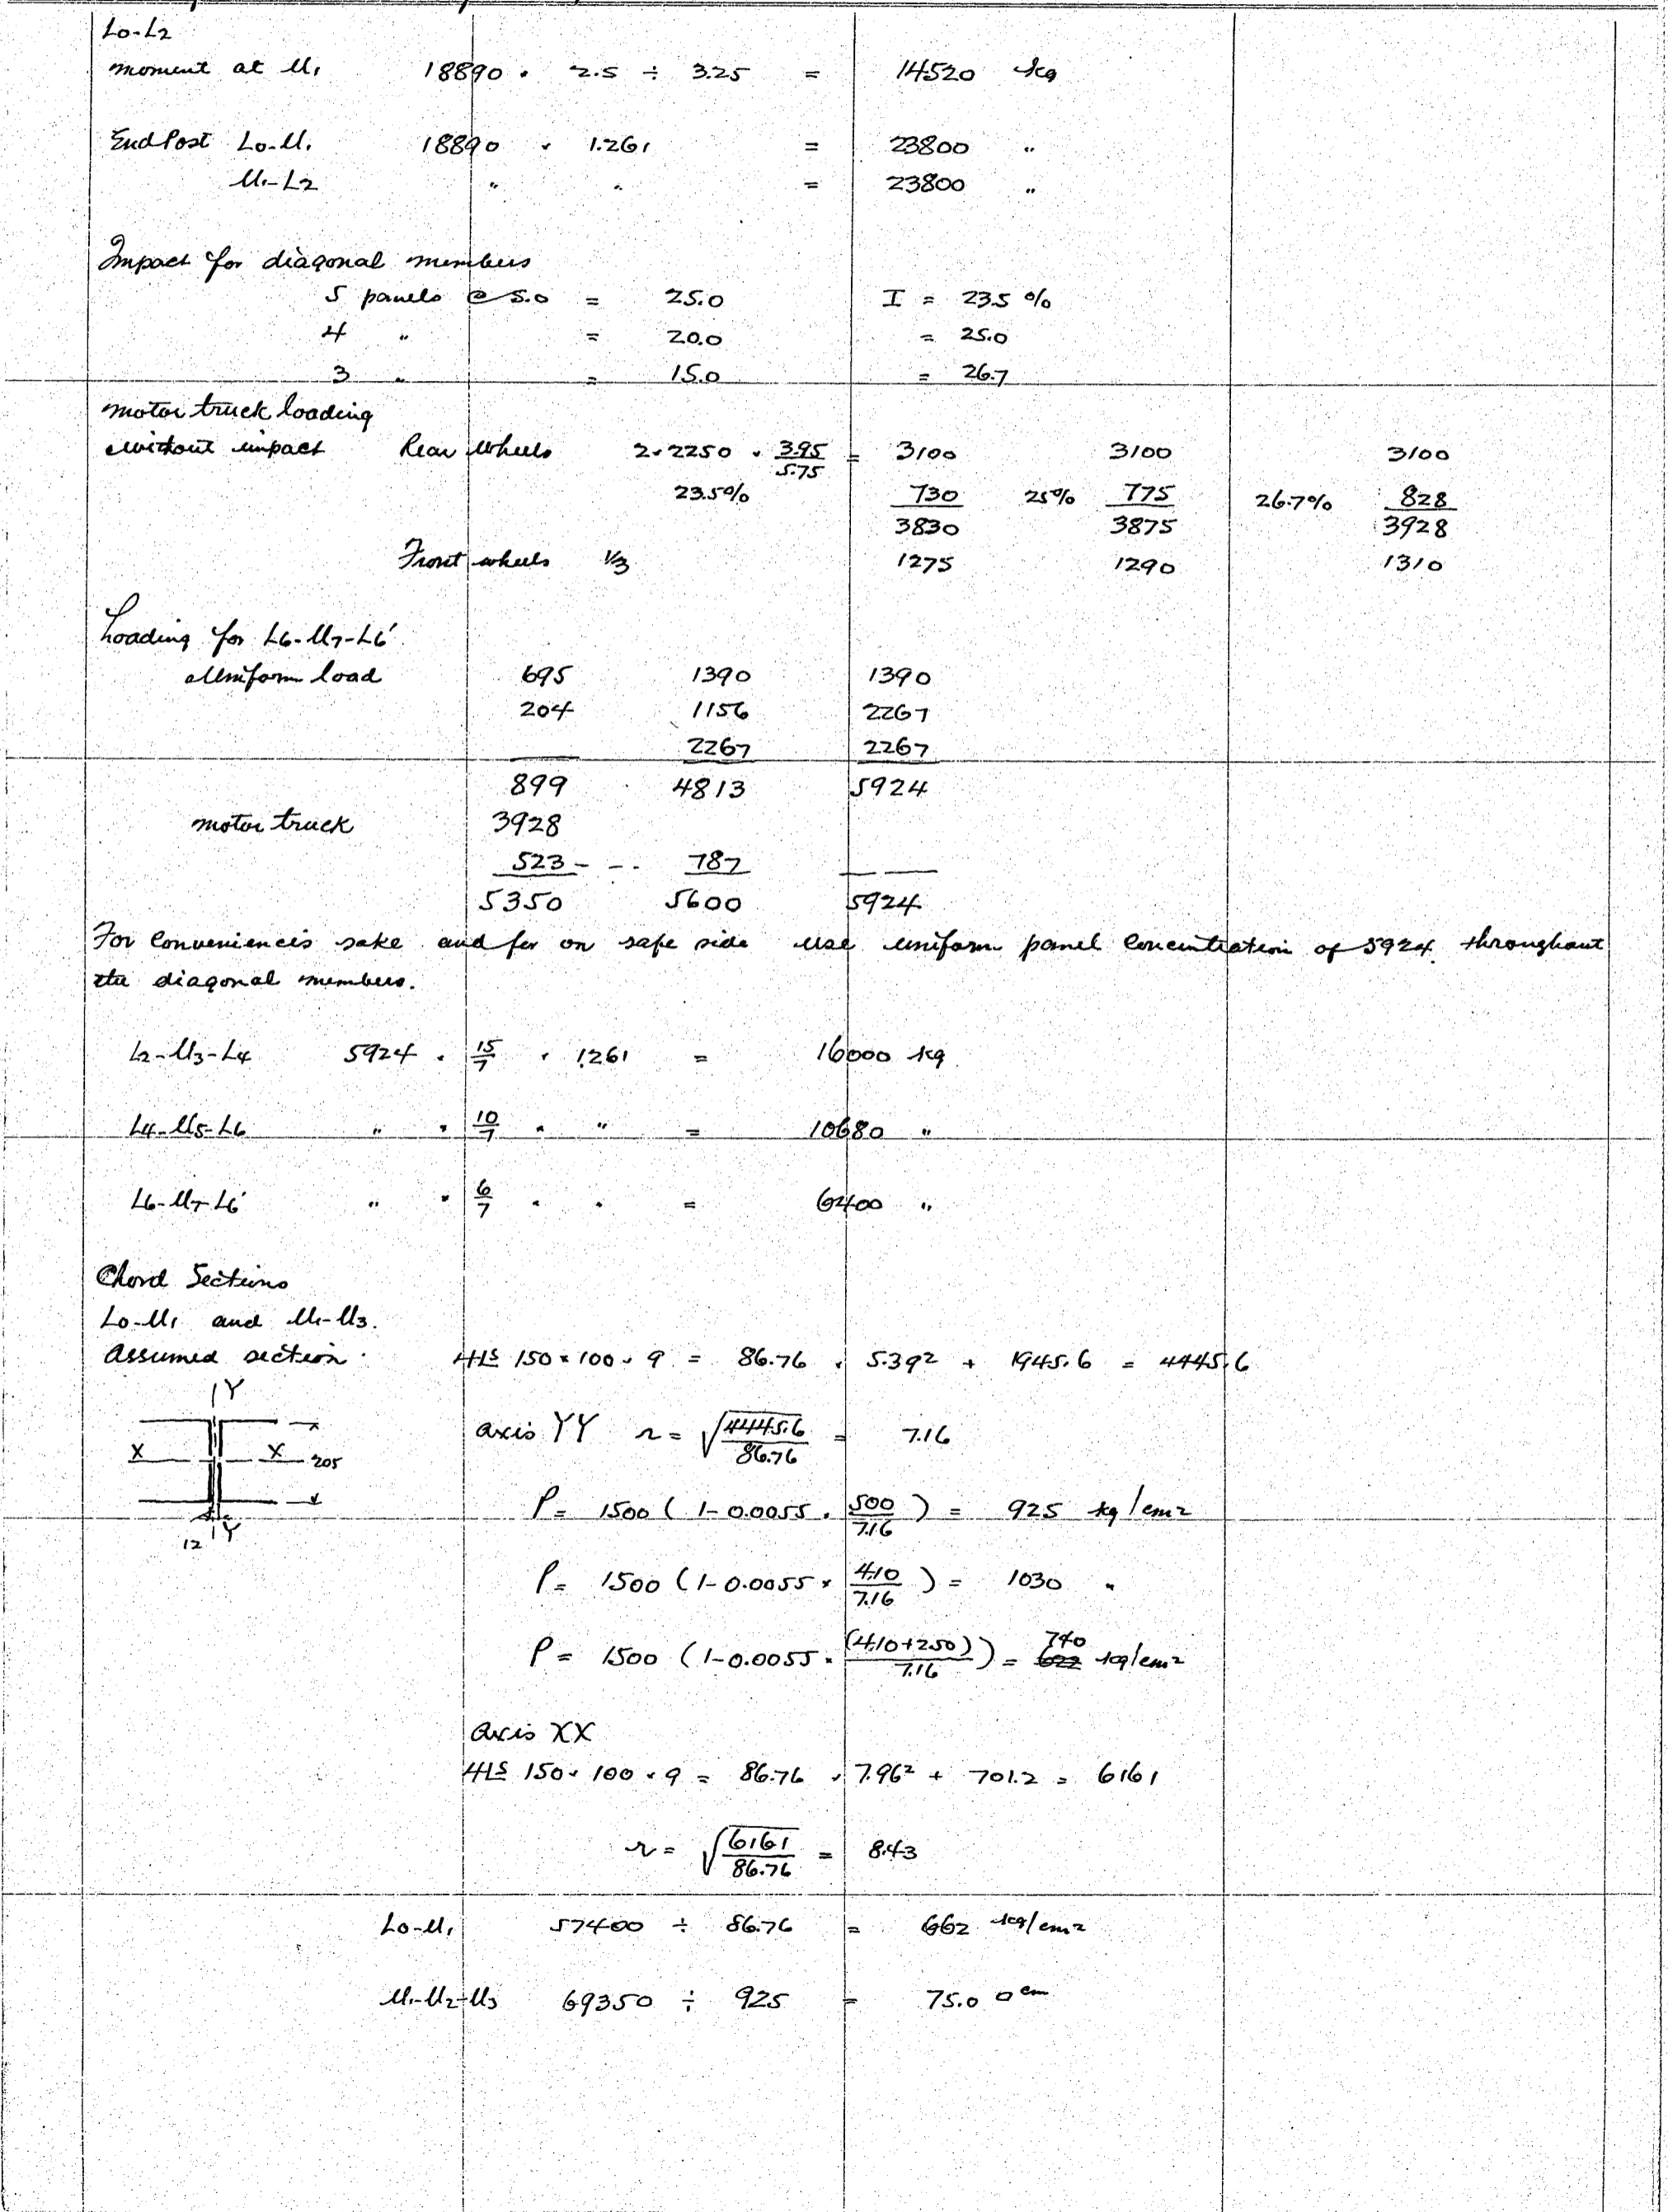 L0-L2
moment at U1 18890 · 2.5 ÷ 3.25 = 14520 kg
End Post L0-U1 18890 · 1.261 = 23800 "
U1-L2 " " = 23800 "
Impact for diagonal members
5 panels @ 5.0 = 25.0 I = 23.5 %
4 " = 20.0 = 25.0
3 " = 15.0 = 26.7
motor truck loading
without impact Rear Wheels 2·2250 · 3.95/5.75 = 3100 3100 3100
23.5% 730 25% 775 26.7% 828
3830 3875 3928
Front wheels 1/3 1275 1290 1310
Loading for L6-U7-L6'
Uniform load 695 1390 1390
204 1156 2267
2267 2267
899 4813 5924
motor truck 3928
523 - - - 787
5350 5600 5924
For Convenience's sake and for on safe side use uniform panel concentration of 5924 throughout
the diagonal members.
L2-U3-L4 5924 · 15/7 · 1.261 = 16000 kg
L4-U5-L6 " · 10/7 · " = 10680 "
L6-U7-L6' " · 6/7 · " = 6400 "
Chord Sections
L0-U1 and U1-U3.
Assumed section 4Ls 150×100×9 = 86.76 · 5.39² + 1945.6 = 4445.6
Y
axis YY r = √(4445.6/86.76) = 7.16
X X 205
P = 1500 ( 1-0.0055 · 500/7.16 ) = 925 kg/cm2
Y
12
P = 1500 ( 1-0.0055 × 410/7.16 ) = 1030 "
P = 1500 ( 1-0.0055 · (410+250)/7.16 ) = 622 740 kg/cm2
axis XX
4Ls 150×100×9 = 86.76 · 7.96² + 701.2 = 6161
r = √(6161/86.76) = 8.43
L0-U1 57400 ÷ 86.76 = 662 kg/cm2
U1-U2-U3 69350 ÷ 925 = 75.0 □cm